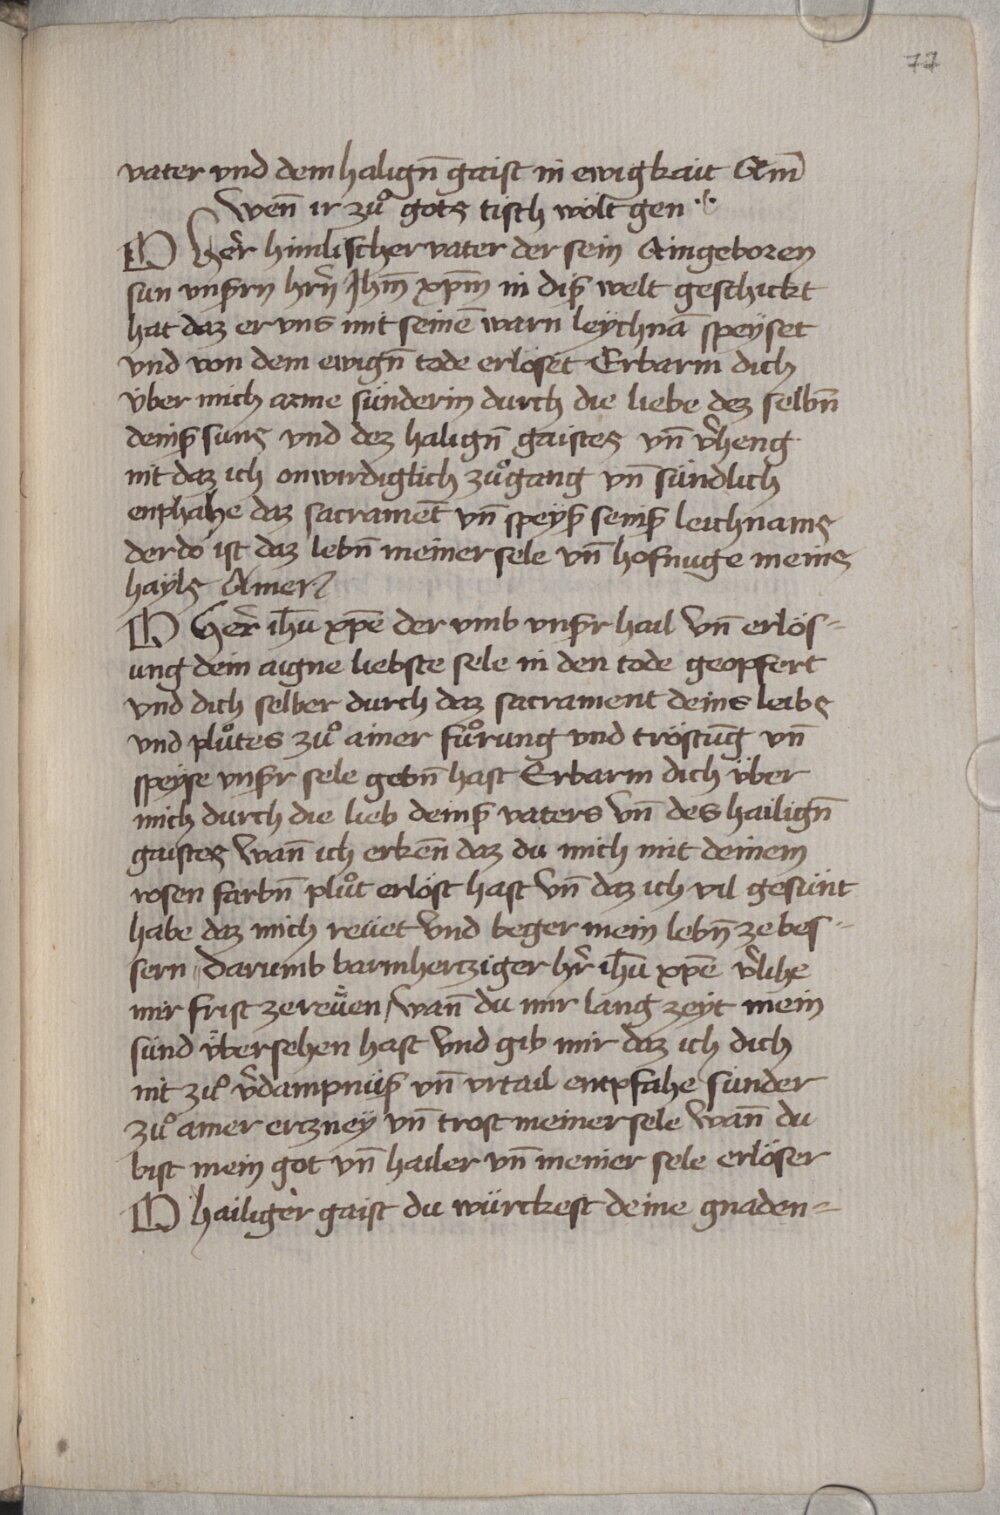 77
vater vnd dem halign̄ gaist in ewigkait Am̄
wen̄ ir zuͦ gots tisch wölt gen
O Her̄ himlischer vater der sein Aingeboren
sun vnsern hrn̄ Jhm̄ xpm̄ in diß welt geschickt
hat daz er vns mit seinē warn leychnā speyset
vnd von dem ewign̄ tode erlöset Erbarm dich
über mich arme sünderin durch die liebe dez selbn̄
deinß suns vnd dez halign̄ gaistes vn̄ v̄heng
nit daz ich onwirdiglich zuͦgang vn̄ sündlich
enphahe daz sacramēt vn̄ speyß seinß leichnams
der do ist daz lebn̄ meiner sele vn̄ hofnuge meins
hayls Amen
O Her̄ ih̄u xpē der vmb vnser hail vn̄ erlös-
ung dein aigne liebste sele in den tode geopfert
vnd dich selber durch daz sacrament deins leibs
vnd pluͦtes zuͦ ainer fuͦrung vnd tröstūg vn̄
speyse vnser sele gebn̄ hast Erbarm dich über
mich durch die lieb deinß vaters vn̄ des hailign̄
gaistes wan̄ ich erken̄ daz du mich mit deinem
rosen farbn̄ pluͦt erlöst hast vn̄ daz ich vil gesünt
habe daz mich reüet vnd beger mein lebn̄ ze bes-
sern Darumb barmhertziger hr̄ ih̄u xpē v̄lihe
mir frist ze reüen / wan̄ du mir lang zeyt mein
sünd übersehen hast vnd gib mir daz ich dich
nit zuͦ v̄dampnüß vn̄ vrtail entpfahe sunder
zuͦ ainer ertzney vn̄ trost meiner sele wan̄ du
bist mein got vn̄ hailer vn̄ meiner sele erlöser
O hailiger gaist du würckest deine gnaden-